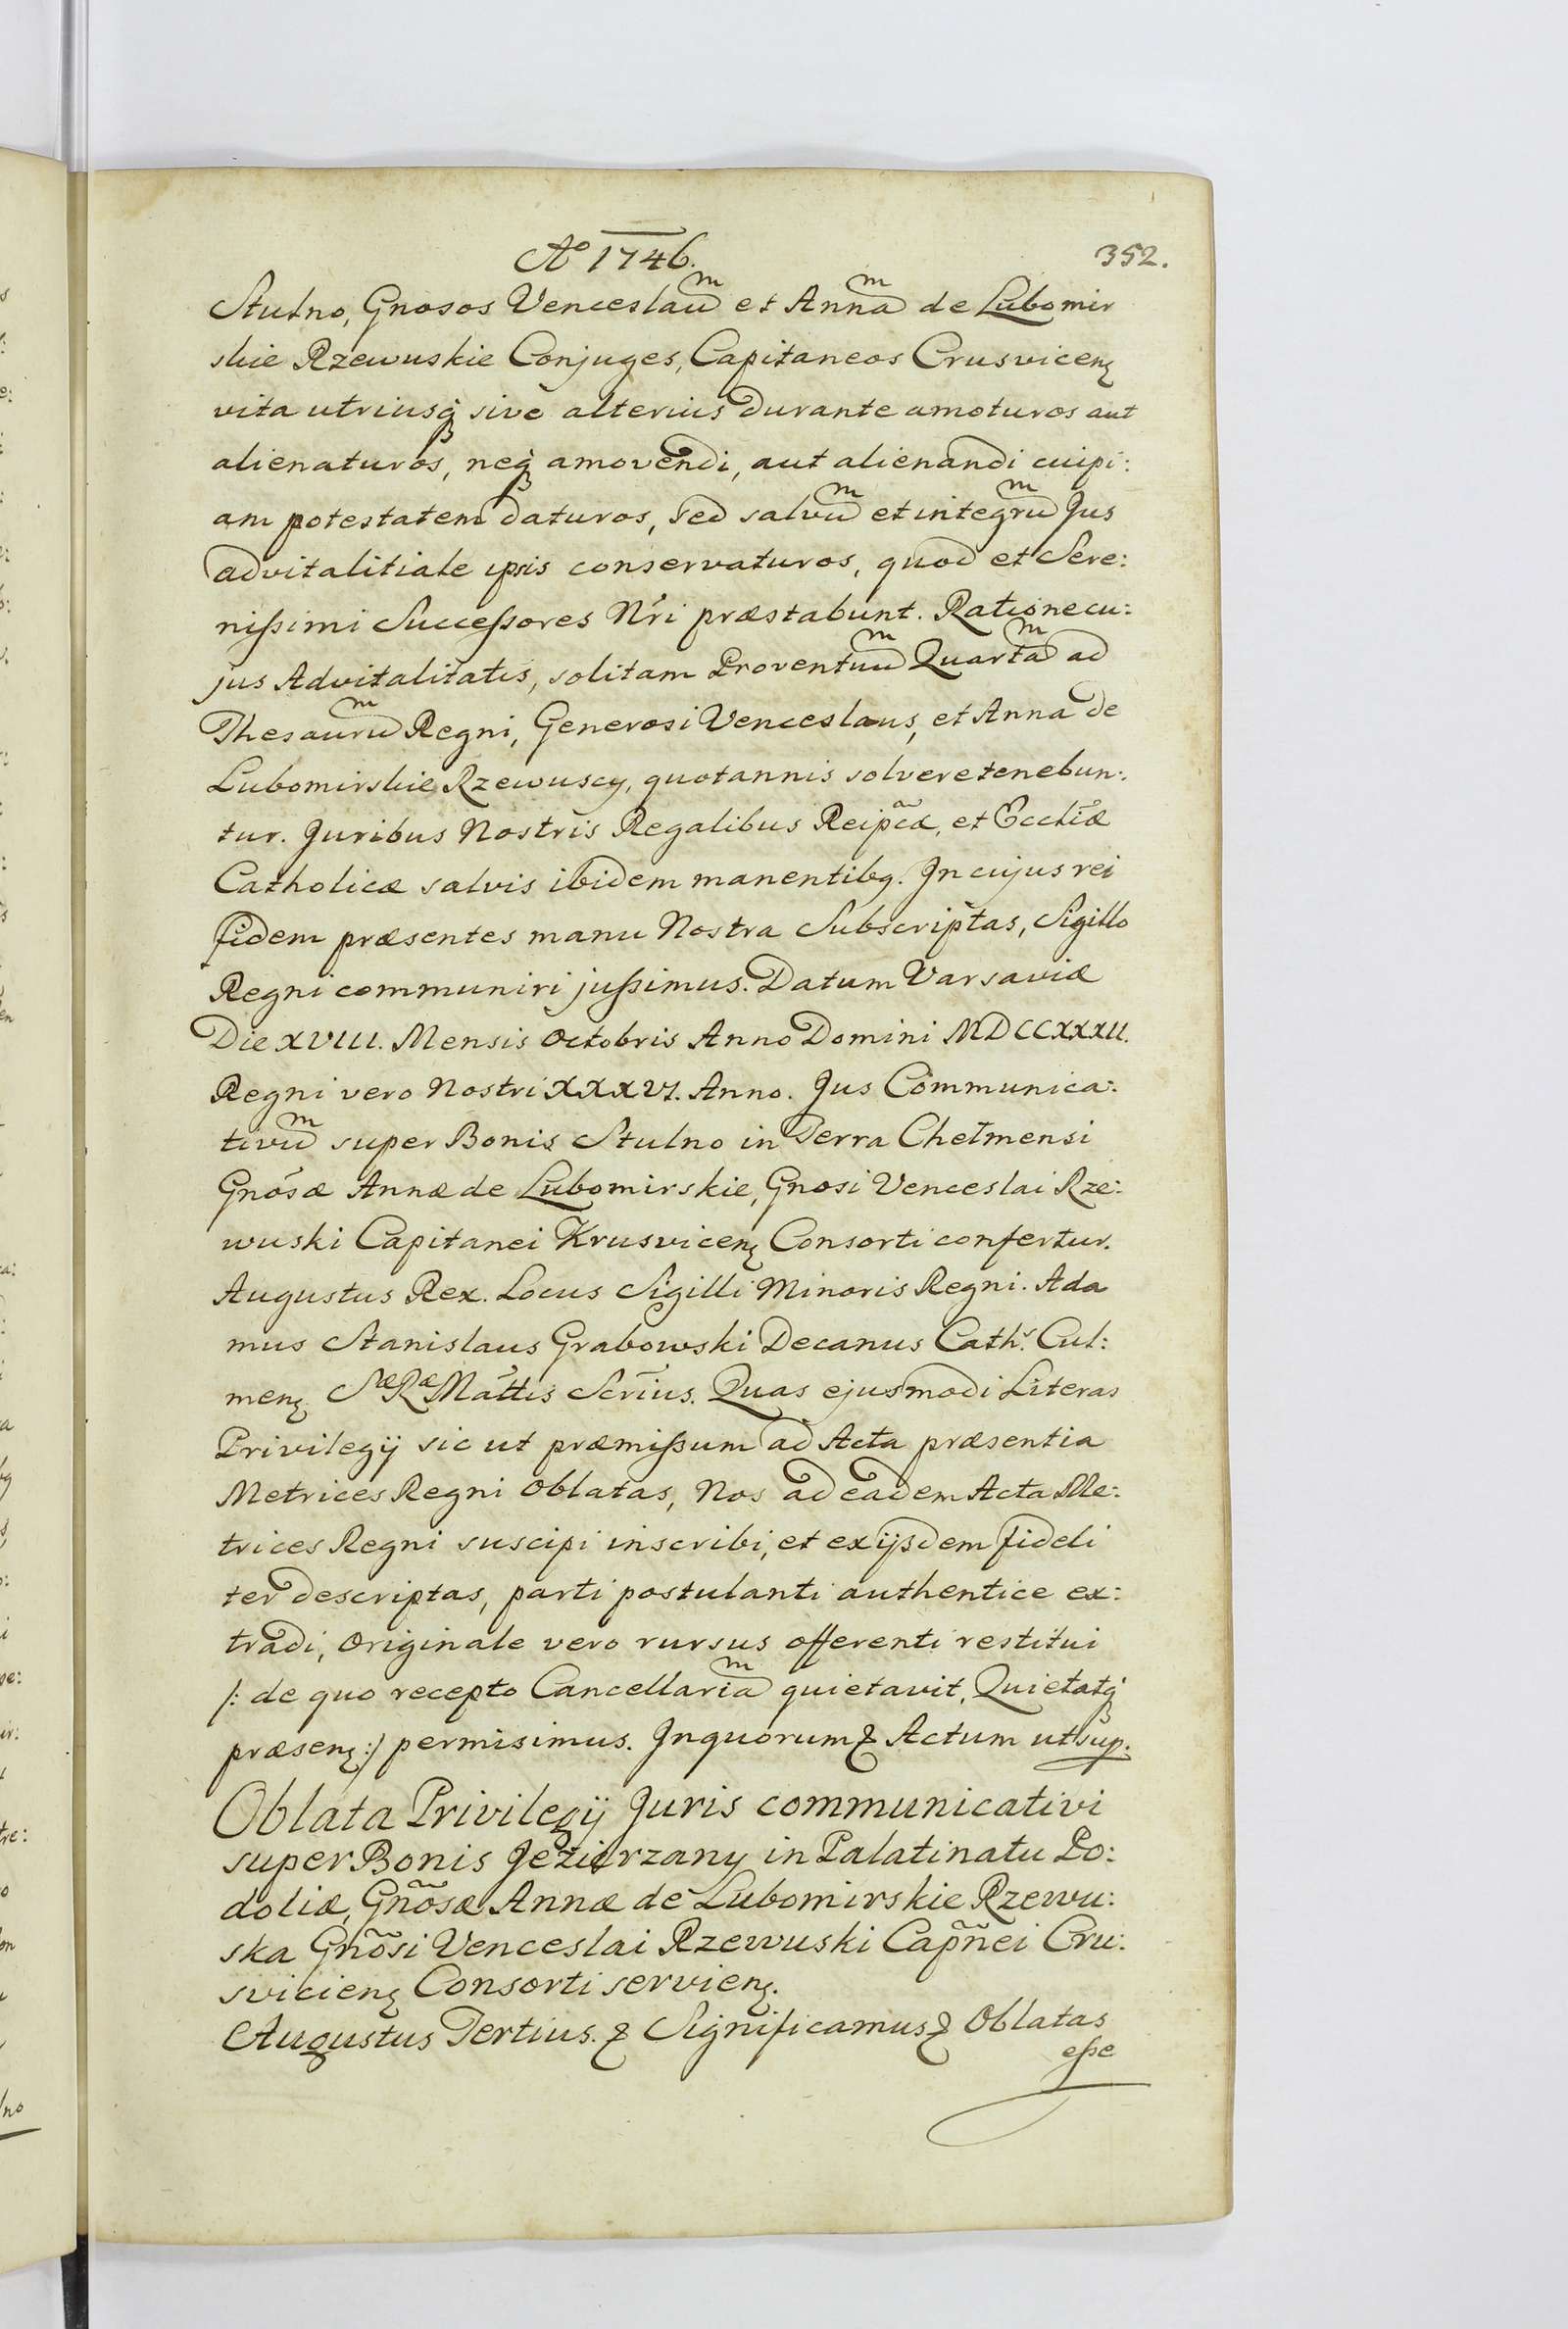 Aº 1746.
352.
Stulno, Gnosos Venceslaũm et Annãm de Lubomir
skie Rzewuskie Conjuges, Capitaneos Crusvicenȝ
vita utriusq́ sivè alterius durante amoturos aut
alienaturos, neq́ amovendi, aut alienandi cuipi:
am potestatem daturos, sed salvũm et integrũm Jus
advitalitiale ipsis conservaturos, quod et Sere:
nißimi Succeßores Nr̃i præstabunt. Ratione cu:
jus Advitalitatis, solitam Proventuũm Quartãm ad
Thesaurũm Regni, Generosi Venceslaus, et Anna de
Lubomirskie Rzewuscy, quotannis solvere tenebun:
tur. Juribus Nostris Regalibus Reipc̃æ, et Eccliæ
Catholicæ salvis ibidem manentibg. In cujus rei
fidem præsentes manu Nostra Subscriptas, Sigillo
Regni communiri jußimus. Datum Varsaviæ
Die XVIII. Mensis Octobris Anno Domini MDCCXXXII.
Regni vero Nostri XXXVI. Anno. Jus Communica:
tivũm super Bonis Stulno in Terra Chełmensi
Gnósæ Annæ de Lubomirskie, Gnosi Venceslai Rze:
wuski Capitanei Krusvicenȝ Consorti confertur.
Augustus Rex. Locus Sigilli Minoris Regni. Ada
mus Stanislaus Grabowski Decanus Cathr. Cul:
menȝ Sæ Ræ Mattis Scrius. Quas ejusmodi Literas
Privilegij sic ut præmißum ad Acta præsentia
Metrices Regni oblatas, Nos ad eadem Acta Me:
trices Regni suscipi inscribi, et ex ijsdem fideli
ter descriptas, parti postulanti authentice ex:
tradi, Originale vero rursus offerenti restitui
/: de quo recepto Cancellariãm quietavit, Quietatq́
præsenȝ :/ permisimus. In quorum & Actum ut sup.
Oblata Privilegij Juris communicativi
super Bonis Jezierzany in Palatinatu Po:
doliæ, Gnõsæ Annæ de Lubomirskie Rzewu:
ska Gnõsi Venceslai Rzewuski Capñei Cru:
svicienȝ Consorti servienȝ.
Augustus Tertius. & Significamus & Oblatas
eße